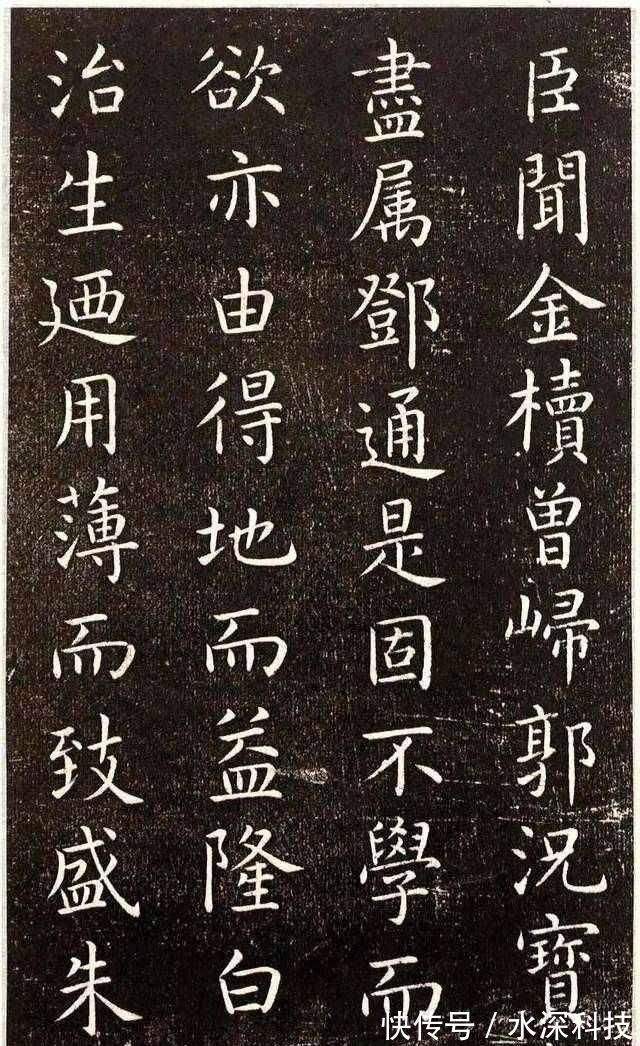 臣聞金櫝曽㱕郭況寶
盡属鄧通是固不學而
欲亦由得地而益隆白
治生廼用薄而致盛朱
快传号/水深科技